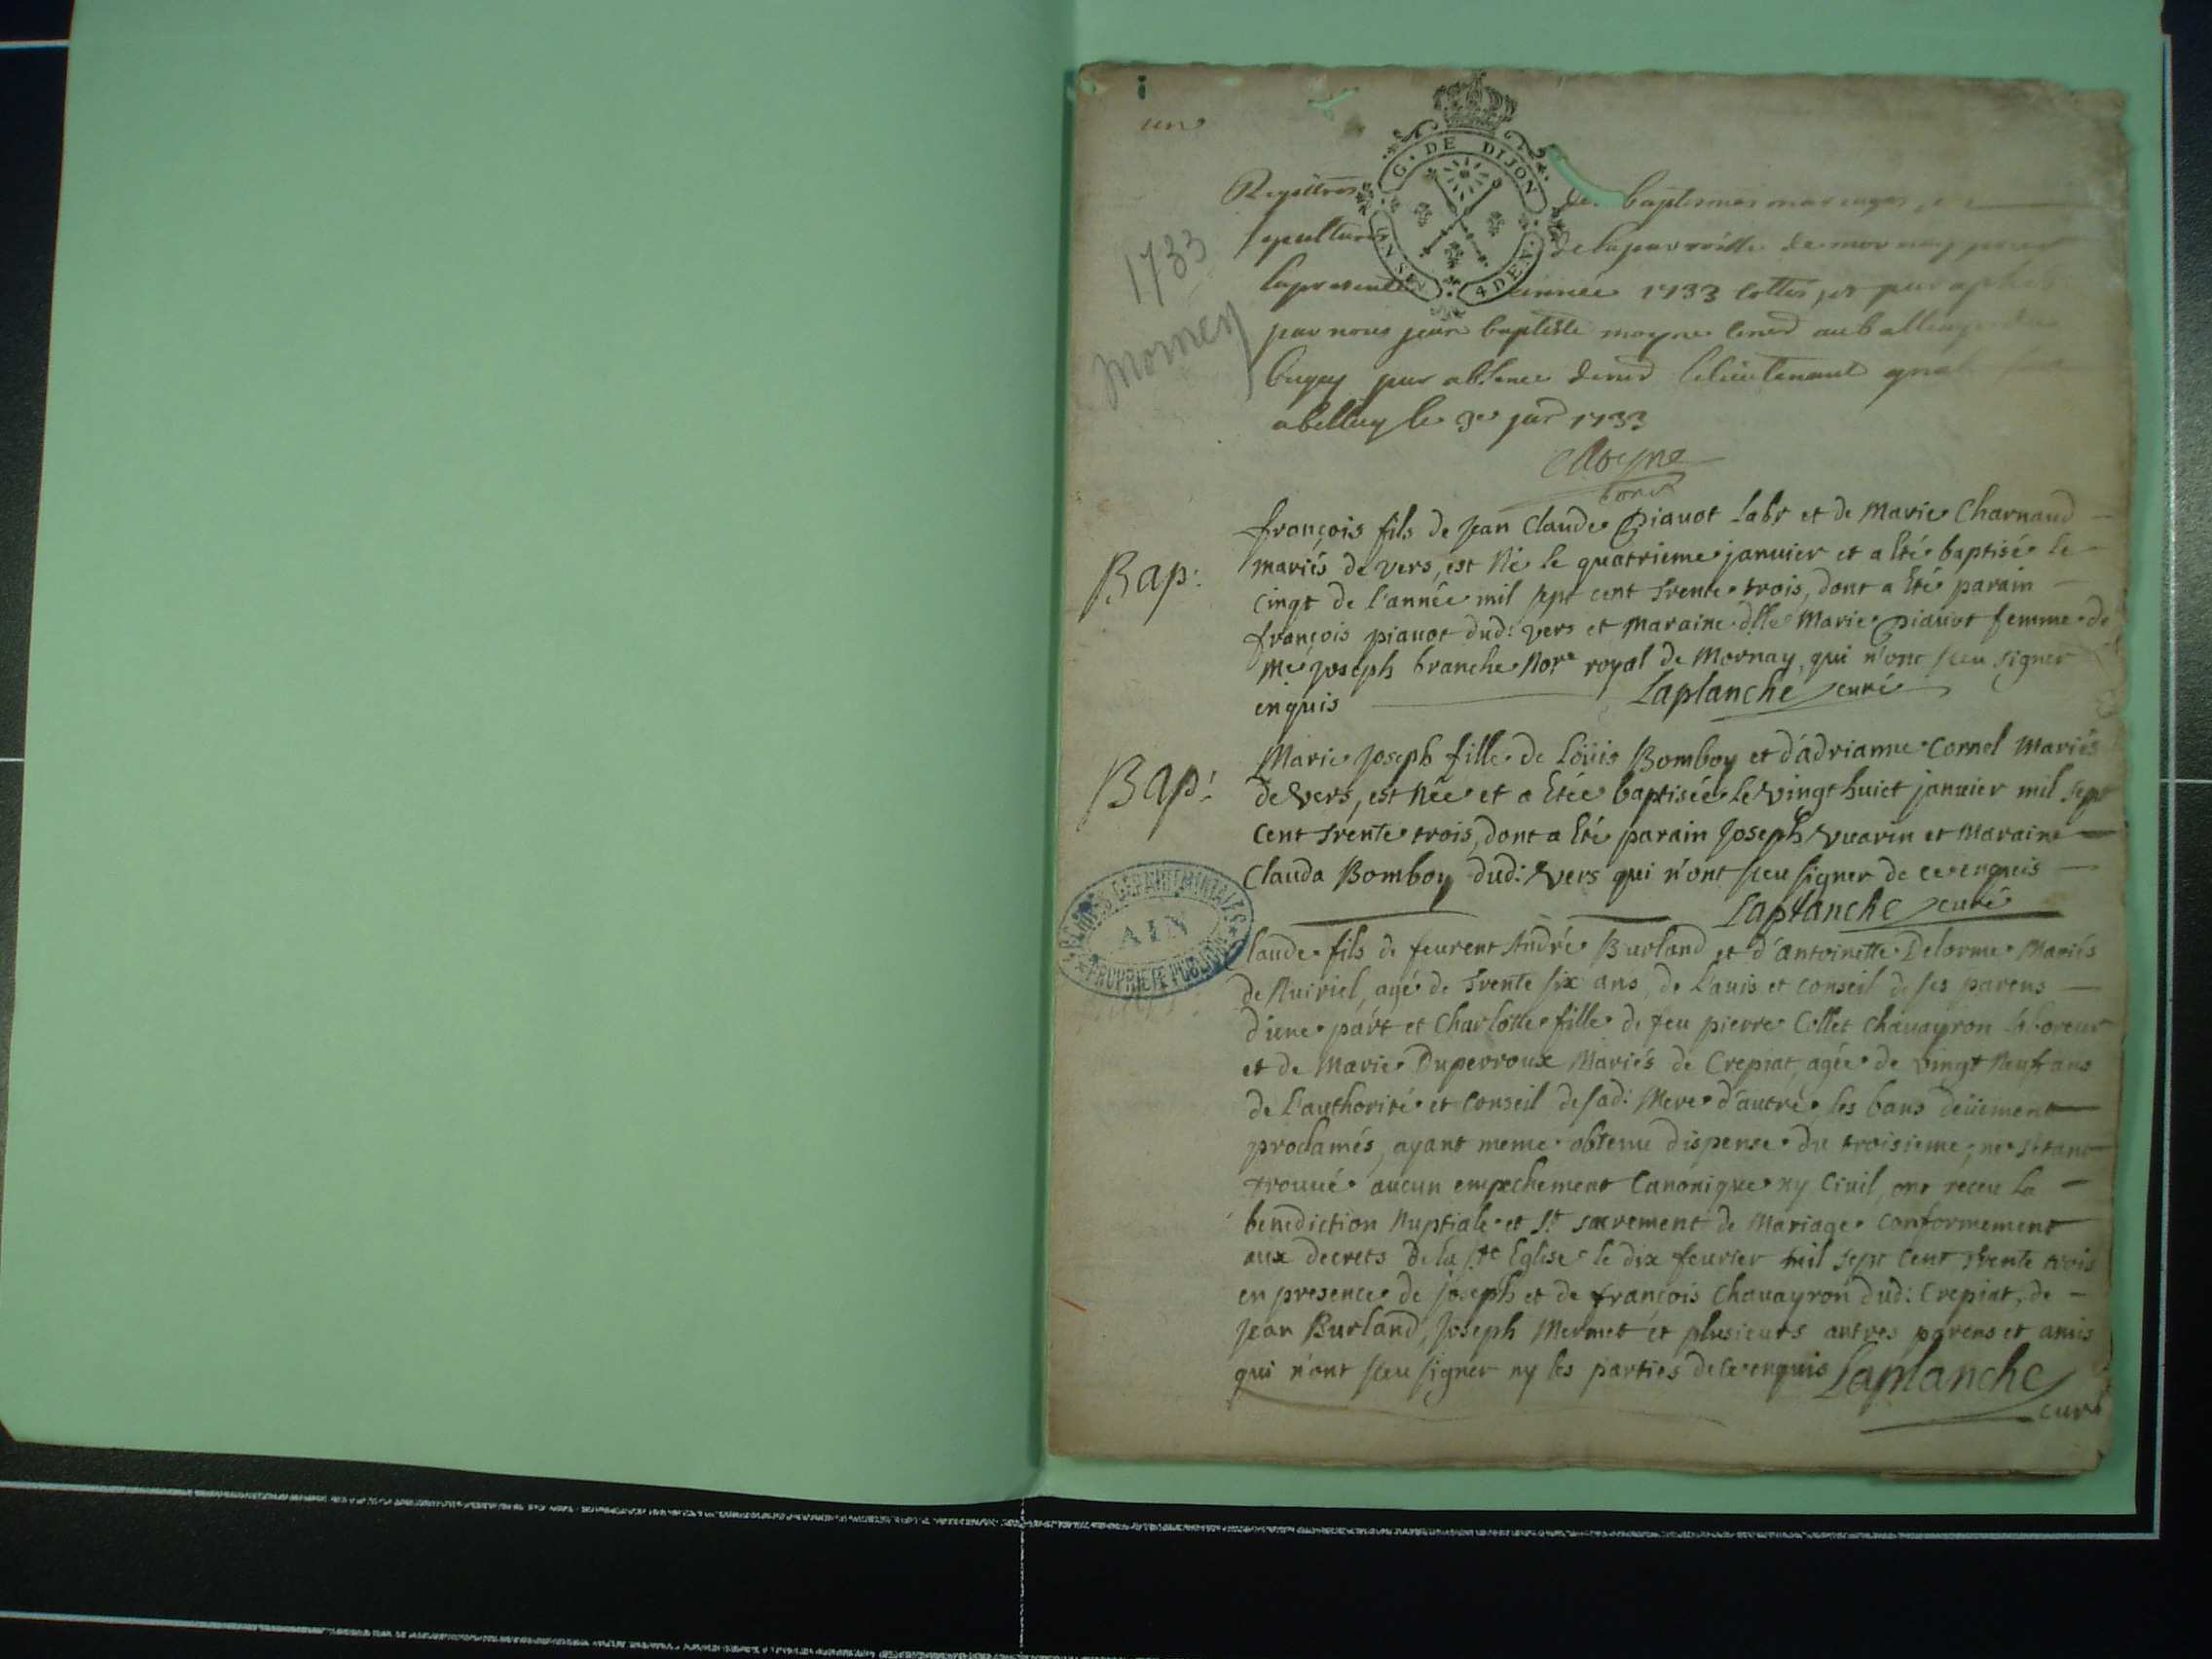 un
G. DE DIJON
UN SE
4 DEN.
1733
Mornay
Registres des baptesmes mariages, et
sepultures de la parroisse de mornay pour
la presente année 1733 cottés, et paraphés
par nous jean baptiste moyne coner au balliage du
bugey par absence de mr le lieutenant gnal
a belley le 3e janr 1733
Moyne
françois fils de jean Claude piauot Labr et de Marie Charnaud
Bap:
mariés de vers, est Né le quatrieme januier et a Eté baptisé le
cinqt de l'année mil sept cent trente trois, dont a Eté parain
françois piauot dud: vers et Maraine dlle Marie piauot femme de
Me joseph branche Nore royal de Mornay, qui n'ont sceu signer
enquis Laplanche curé
Marie joseph fille de Loüis Bomboy et d'adrianne Cornel Mariés
Bap:
de Vers, est Née et a Etée baptisée le vingt huict januier mil sept
cent trente trois, dont a Eté parain Joseph Vuarin et Maraine
Clauda Bomboy dud: Vers qui n'ont sceu signer de ce enquis
Laplanche curé
ARCHIVES DEPARTEMENTALES
AIN
PROPRIETE PUBLIQUE
laude fils de feu André Burland et d'antoinette Delorme Mariés
de Nuiriel, agé de trente six ans, de L'auis et conseil de ses parens
d'une part et Charlotte fille de feu pierre Collet Chauayron laboreur
et de Marie Duperroux Mariés de Crepiat, agée de vingt Neuf ans
de L'authorité et conseil de sad: Mere d'autre les bans deüement
proclamés, ayant meme obtenu dispense du troisieme; ne s'etant
trouué aucun empechement Canonique ny Ciuil, ont receu la
benediction Nuptiale et St sacrement de Mariage conformement
aux decrets de la ste Eglise le dix feurier mil sept cent trente trois
en presence de joseph et de françois Chauayron dud: Crepiat, de
jean Burland, joseph Mermet et plusieurs autres parens et amis
qui n'ont sceu signer ny les parties de ce enquis Laplanche
curé